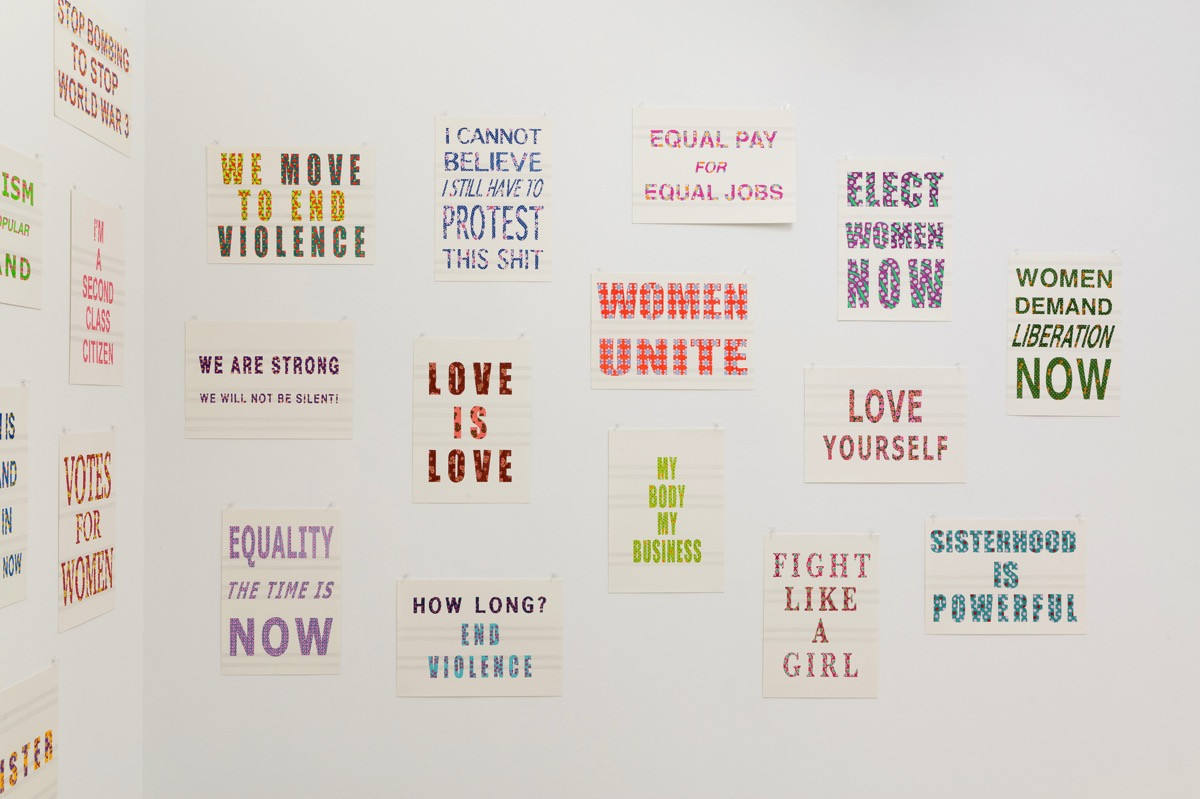 STOP BOMBING
TO STOP
WORLD WAR 3
ISM
OPULAR
AND
I'M
A
SECOND
CLASS
CITIZEN
IS
AND
IN
NOW
VOTES
FOR
WOMEN
ISTER
WE MOVE
TO END
VIOLENCE
WE ARE STRONG
WE WILL NOT BE SILENT!
EQUALITY
THE TIME IS
NOW
I CANNOT
BELIEVE
I STILL HAVE TO
PROTEST
THIS SHIT
LOVE
IS
LOVE
HOW LONG?
END
VIOLENCE
EQUAL PAY
FOR
EQUAL JOBS
WOMEN
UNITE
MY
BODY
MY
BUSINESS
ELECT
WOMEN
NOW
LOVE
YOURSELF
FIGHT
LIKE
A
GIRL
WOMEN
DEMAND
LIBERATION
NOW
SISTERHOOD
IS
POWERFUL